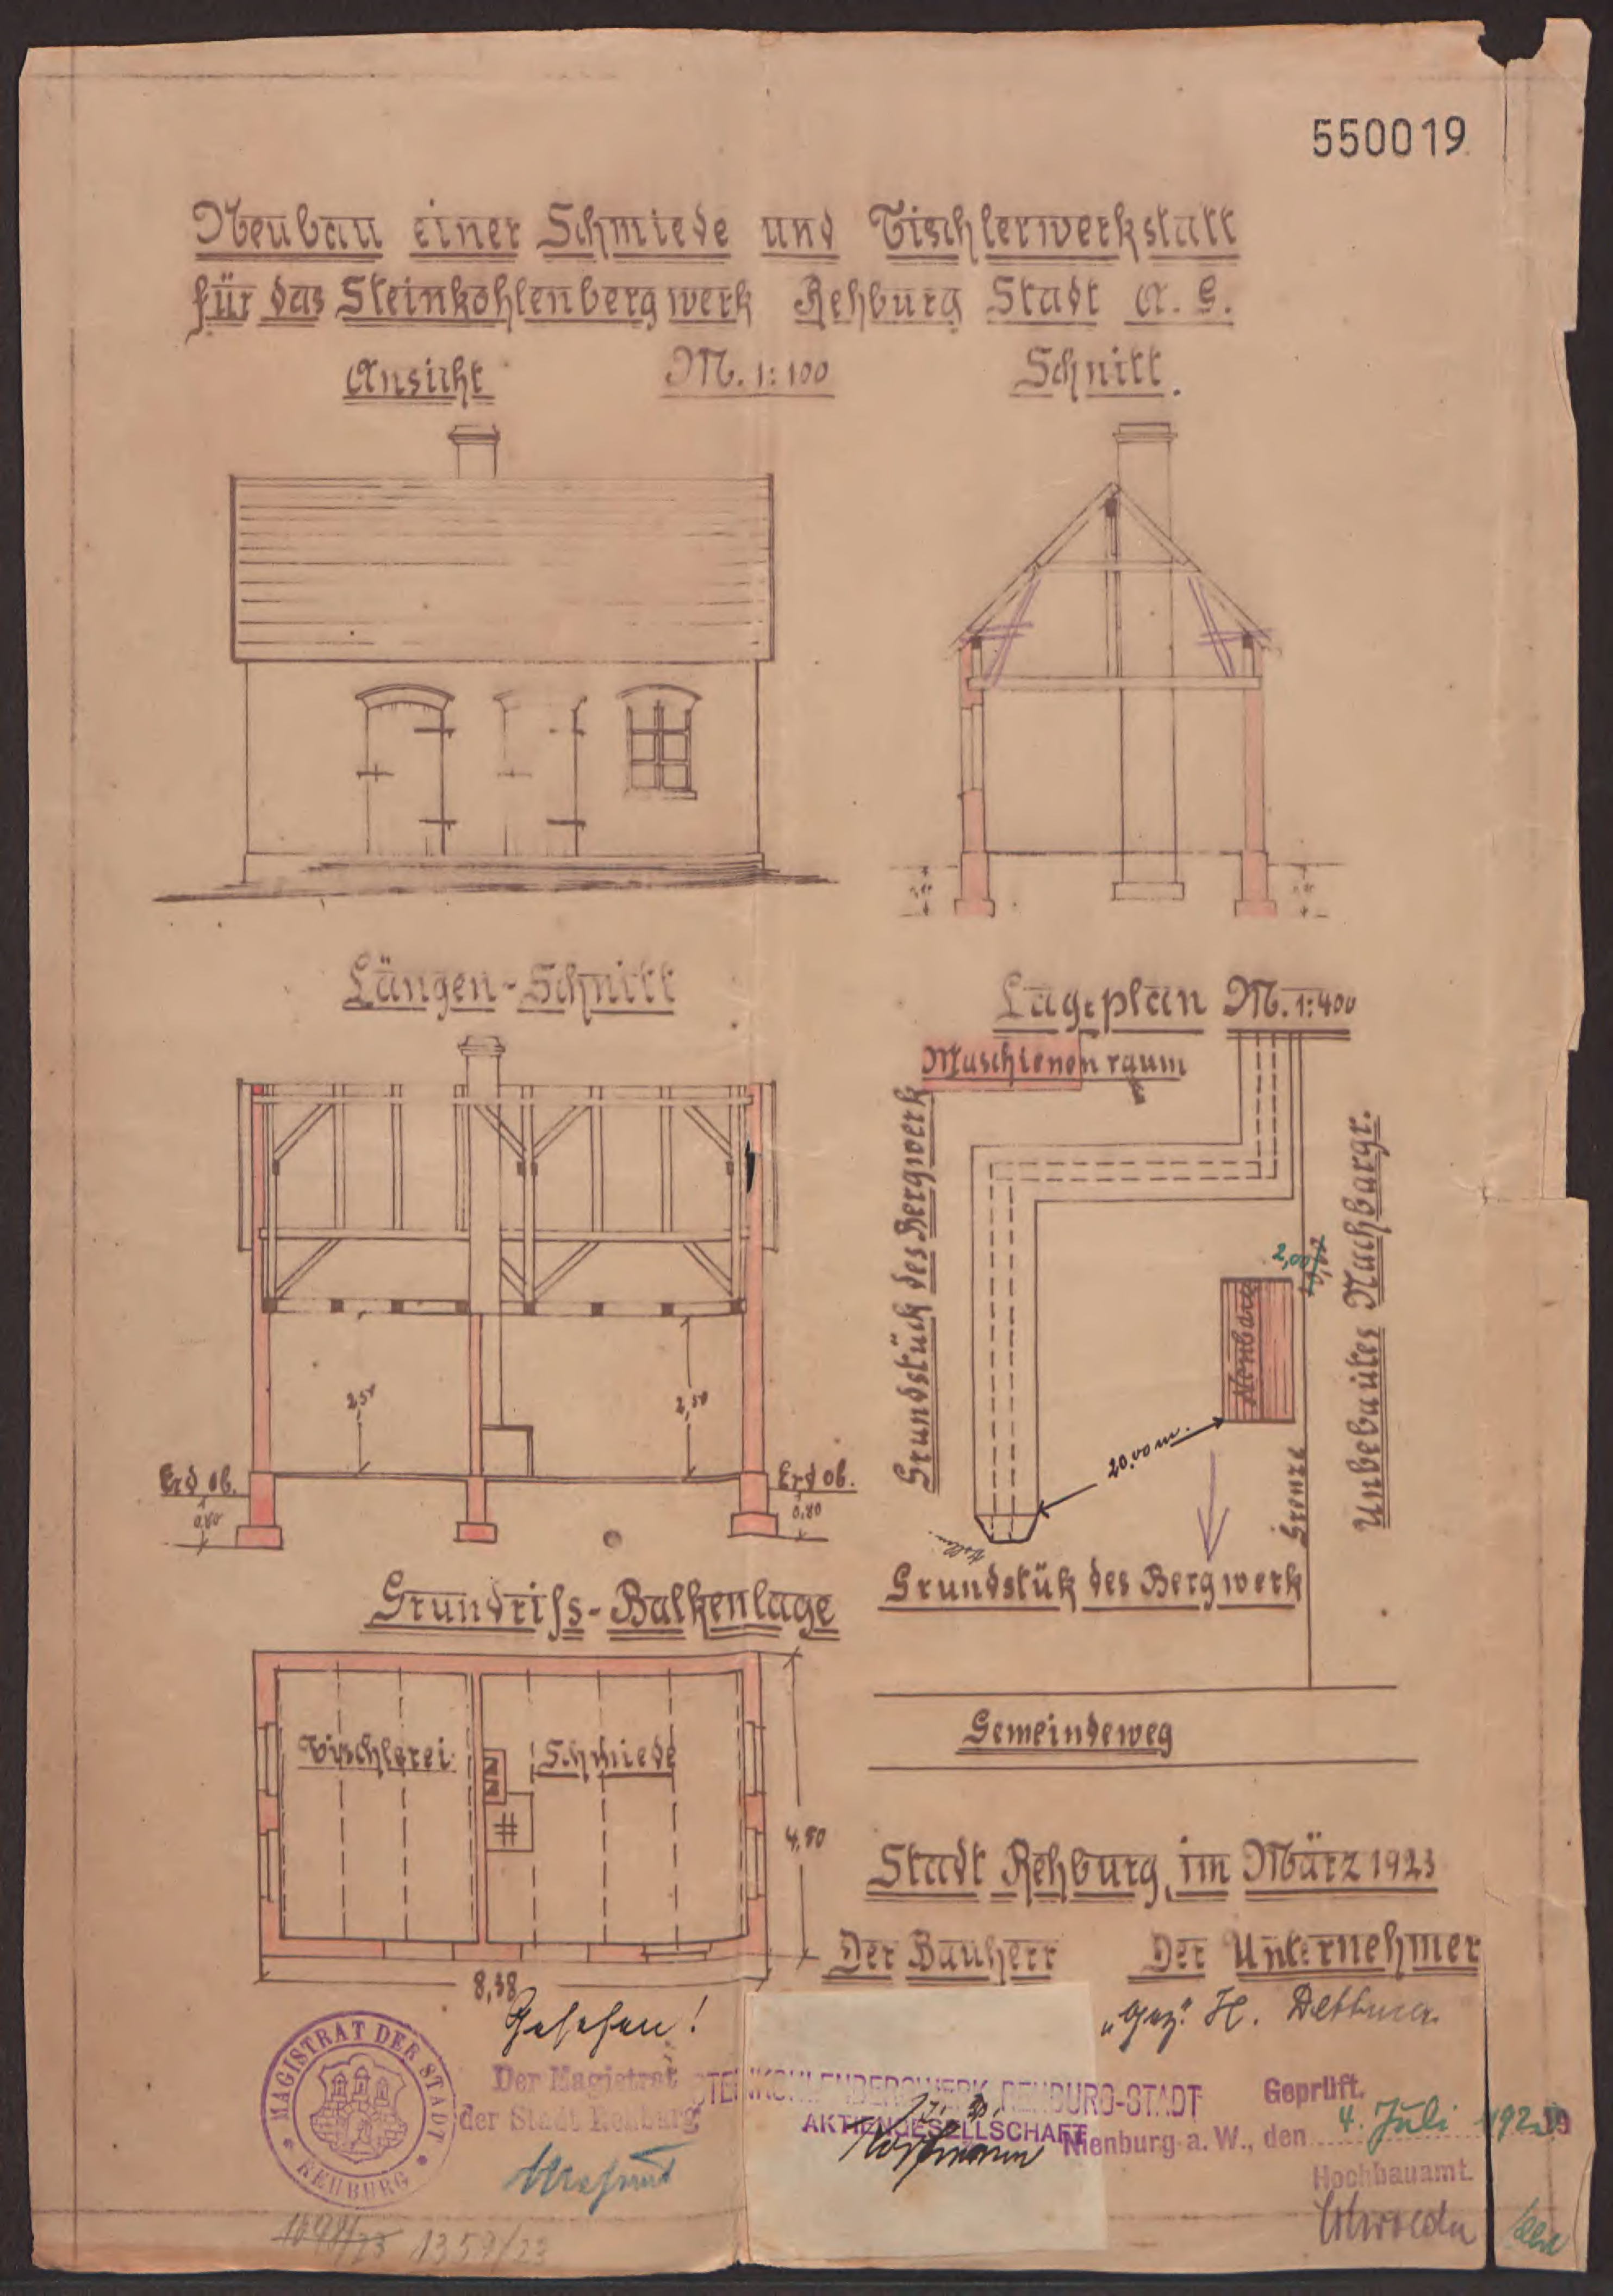 550019
Neubau einer Schmiede und Tischlerwerkstatt
für das Steinkohlenbergwerk Rehburg Stadt A. G.
Ansicht M. 1:100 Schnitt.
Längen-Schnitt
Lageplan M. 1:400
Maschienenraum
Grundstück des Bergwerk
2,00
Neubau
Unbebautes Nachbargr.
20,00 m.
Grenze
Grundstük des Bergwerk
Gemeindeweg
2,50
2,50
Erd ob.
0,80
Erd ob.
0,80
Grundriss-Balkenlage
Tischlerei
Schmiede
4,50
8,38
Stadt Rehburg, im März 1923
Der Bauherr Der Unternehmer
"gez." H. Dettmer
Gesehen!
MAGISTRAT DER STADT
REHBURG
Der Magistrat
der Stadt Rehburg
STEINKOHLENBERGWERK REHBURG-STADT
AKTIENGESELLSCHAFT
Geprüft.
Nienburg a. W., den 4. Juli 1923
Hochbauamt.
1359/23